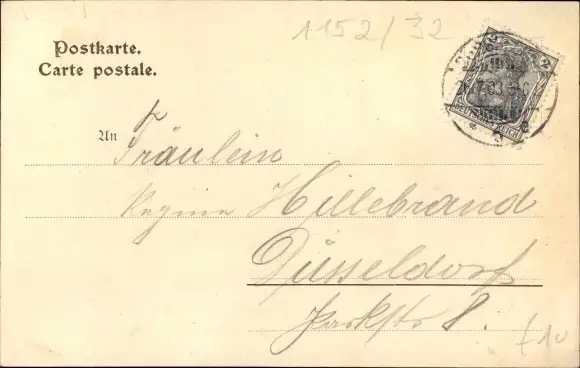 1152/32
Postkarte.
Carte postale.
An
Fräulein
Hillebrand
Düsseldorf
Parkstr 8.
2
DEUTSCHES REICH